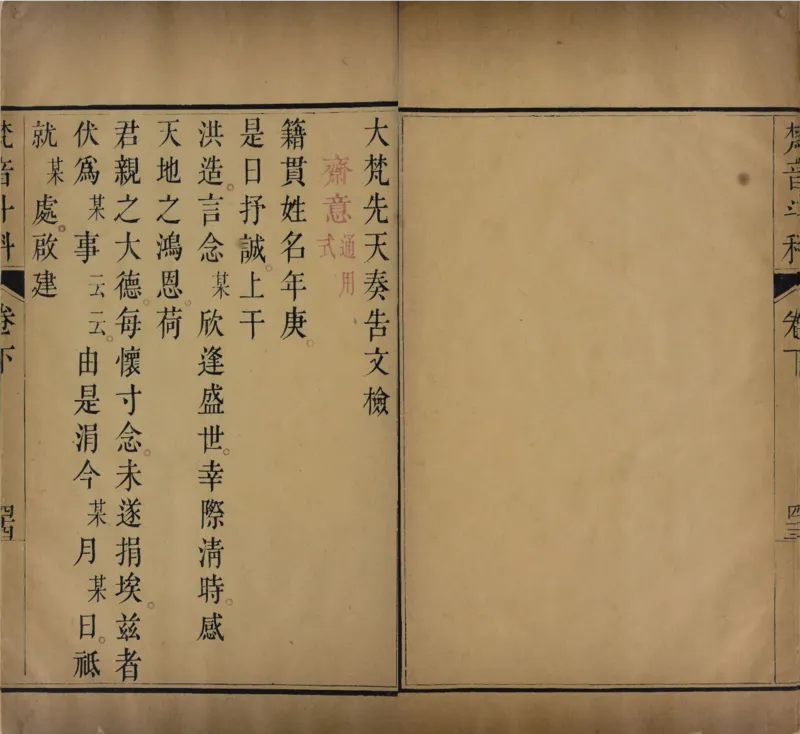 梵音斗科
卷下
四三
大梵先天奏告文檢
齋意通用式
籍貫姓名年庚。
是日抒誠。上干
洪造。言念某欣逢盛世。幸際淸時。感
天地之鴻恩。荷
君親之大德。每懷寸念。未遂捐埃。茲者
伏爲某事云云。由是涓今某月某日。祗
就某處。啟建
梵音斗科
卷下
四四